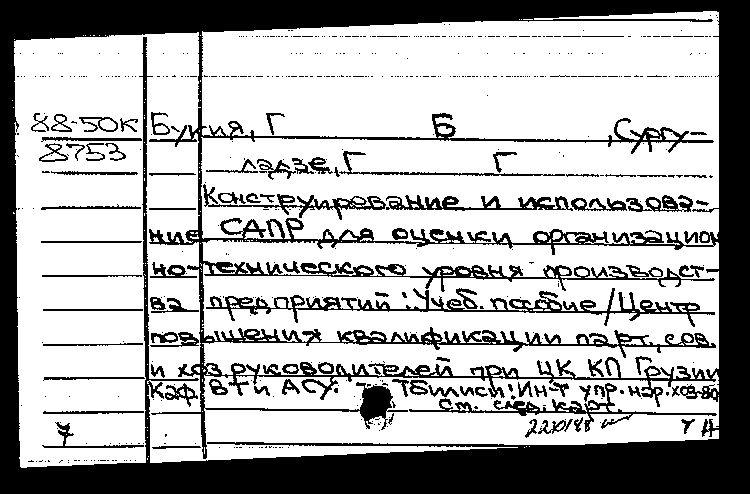 88-50к Букия, Г Б , Сургу-
8753 ладзе, Г Г
Конструирование и использова-
ние САПР для оценки организацион
но-технического уровня производст-
ва предприятий : Учеб. пособие / Центр
повышения квалификации парт., сов.
и хоз. руководителей при ЦК КП Грузии
Каф. ВТ и АСУ. Тбилиси : Ин-т упр. нар. хоз-ва
См. след. карт.
7